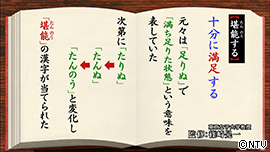 【堪能する】
たんのう
十分に満足する
元々は「足りぬ」で
「満ち足りた状態」という意味を
表していた
次第に「たりぬ」
「たんぬ」
「たんのう」と変化し
「堪能」の漢字が当てられた
たんのう
監修:篠崎晃一
NTV